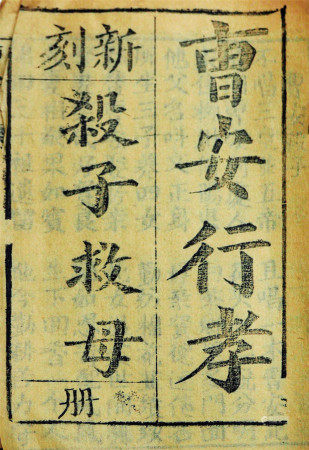 曹安行孝
新刻
殺子救母
册